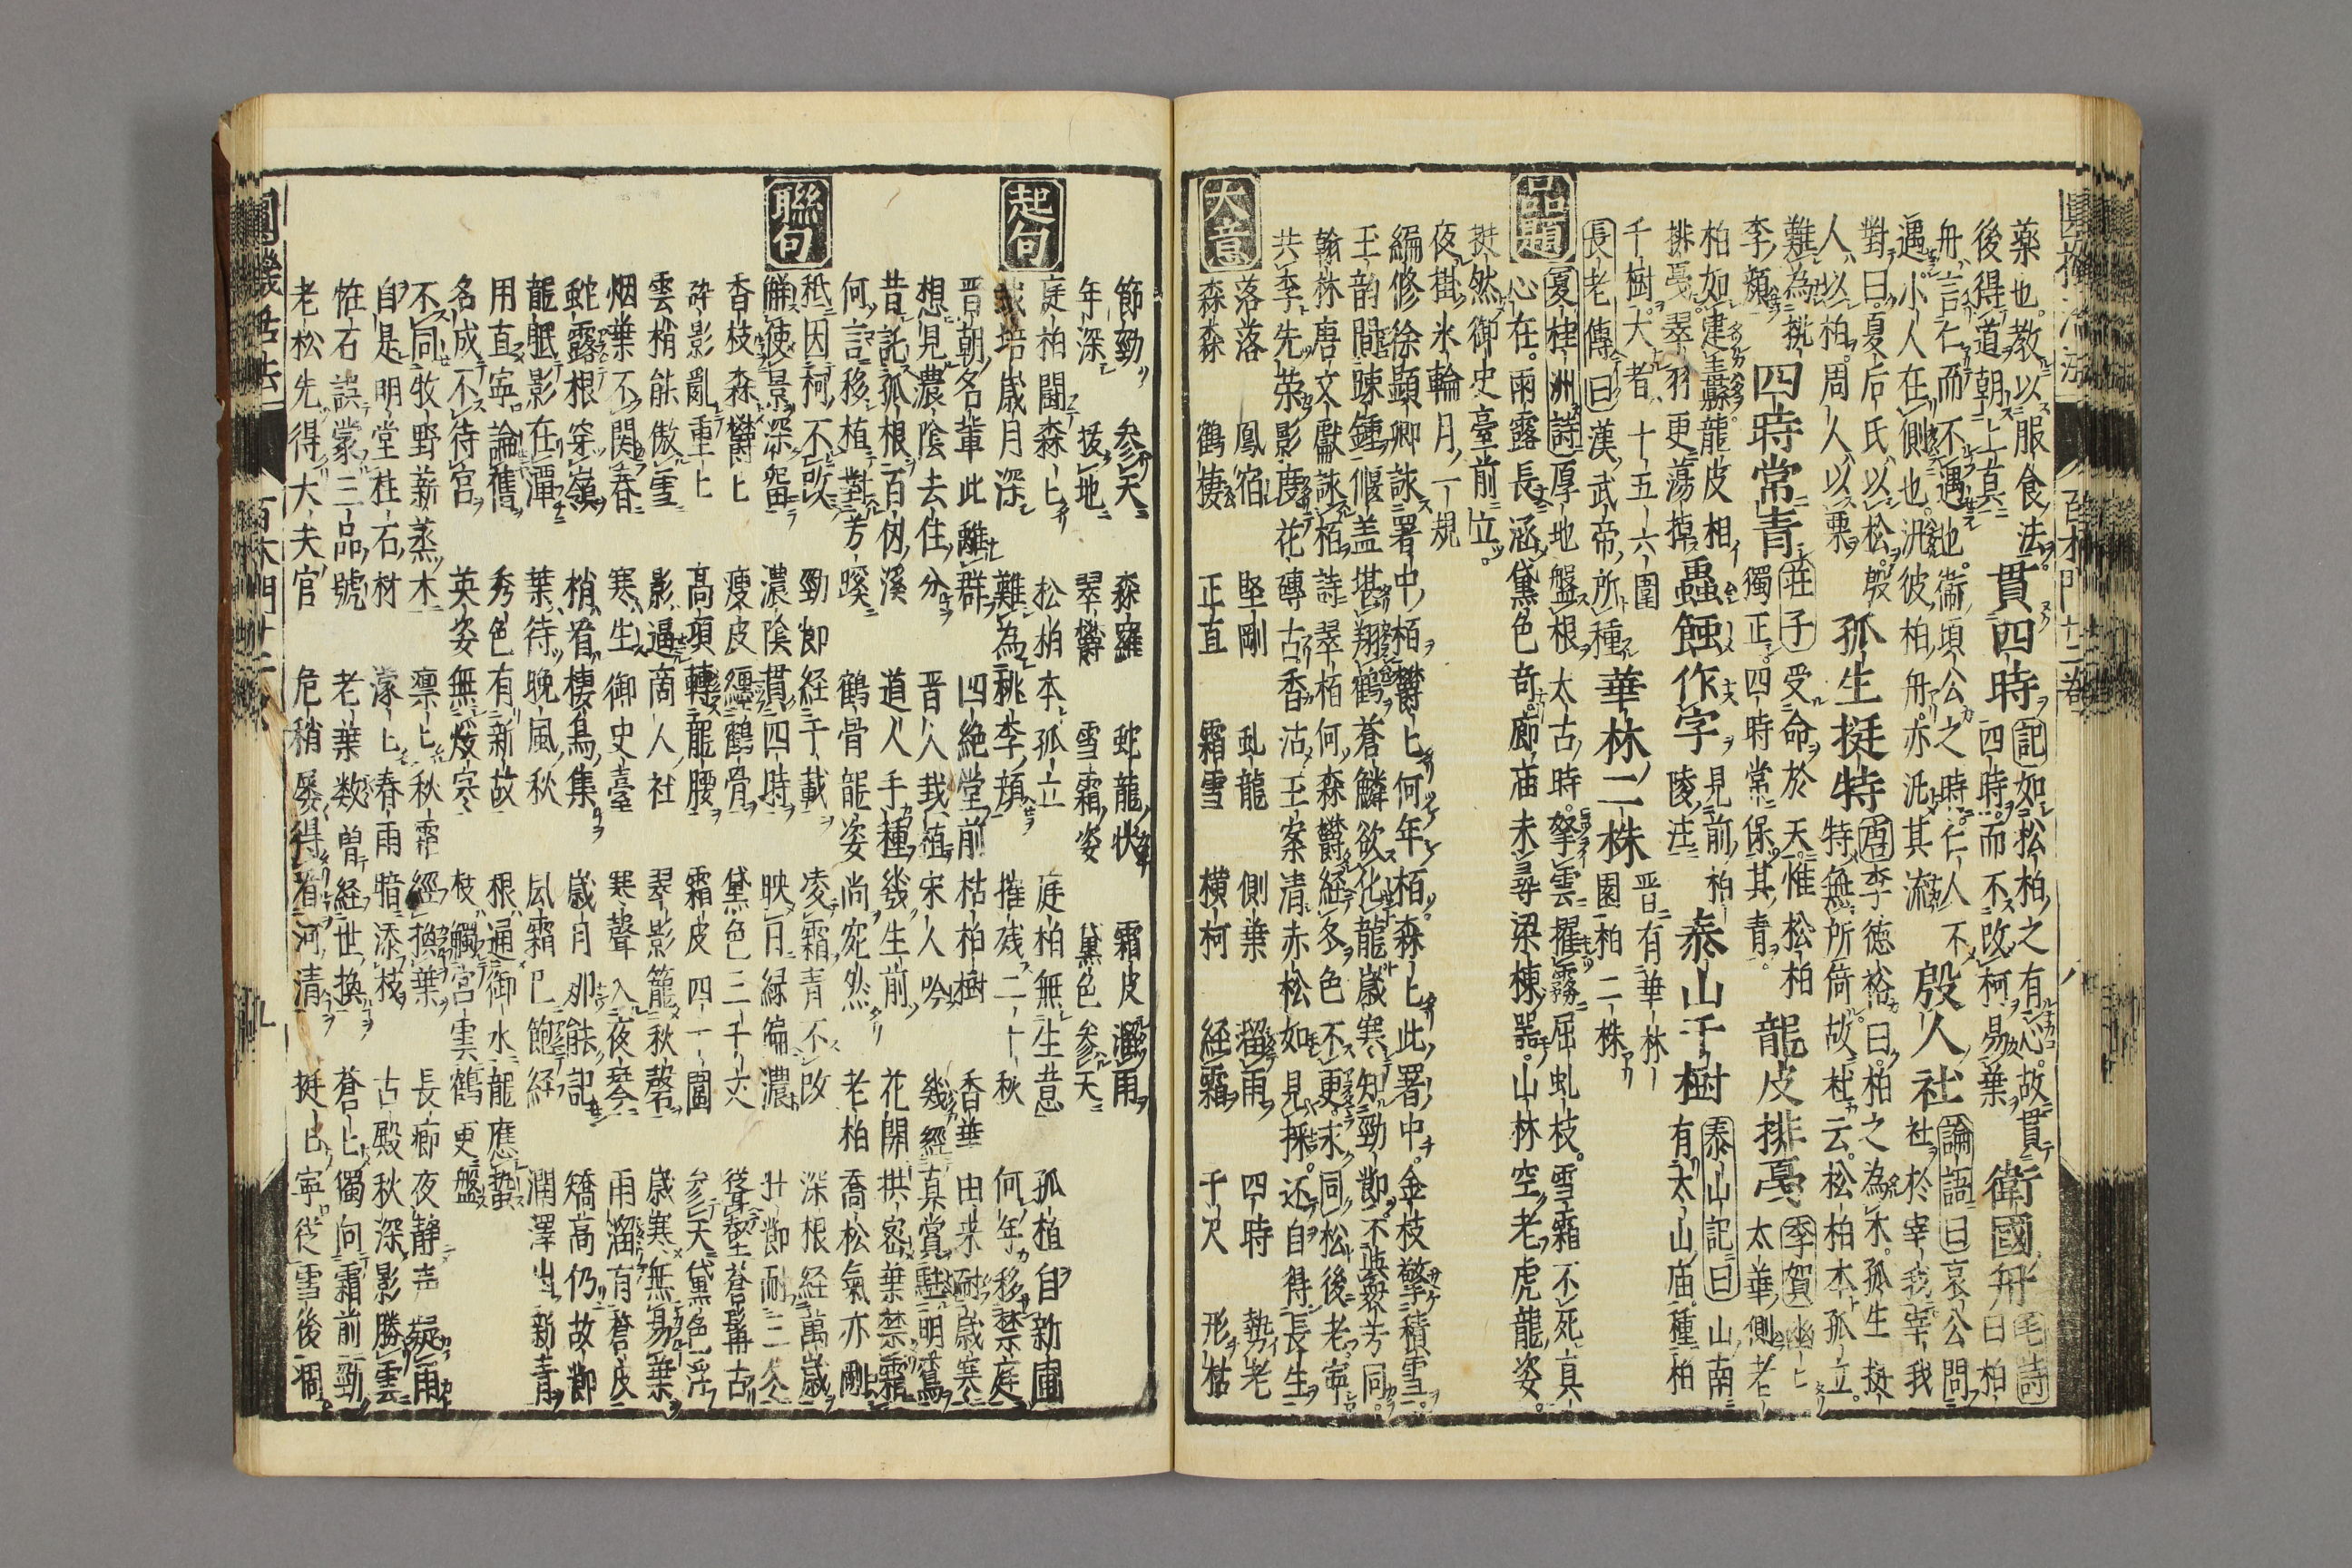 藥也教以服食法 貫四時 記如松柏之有心故貫
後得道朝上真 四時而不改柯易葉 衛國舟 毛詩
舟言仁而不遇也衛頃公之時仁人不 曰柏
遇小人在側也汎彼柏舟亦汎其流 殷人社 論語曰哀公問
對曰夏后氏以松殷 社於宰我宰我
人以柏周人以栗 孤生挺特 唐李德裕曰柏之為木孤生挺
難為桃 特無所倚故杜云松柏本孤立
李顔 四時常青 莊子受命於天惟松柏
獨正四時常保其青 龍皮排戛 季賀幽
柏如建 龍皮相 太華側老
排戛翠羽更蕩掉 蟲蝕作字 見前柏
陵注 泰山千樹 泰山記曰山南
有太山庙種柏
千樹大者十五六圍 華林二株 晋有華林
園柏二株
長老傳曰漢武帝所種
品題
夏桂洲詩 厚地盤根太古時拏雲擢霧屈虬枝雪霜不死真
心在雨露長涵黛色奇廊庙未尋梁棟器山林空老虎龍姿
挺然御史臺前立
夜掛氷輪月一規
編修徐顯卿詠署中柏 欝〻何年柏森〻此署中金枝擎積雪
玉韵間踈鍾偃盖堪翔鶴蒼鱗欲化龍歲寒知勁節不與衆芳同
翰林唐文獻詠栢詩 翠栢何森欝経冬色不更求同松後老寧
共李先荣影度花磚古香沾玉案清赤松如見採还自得長生
大意
落落 鳳宿 堅剛 虬龍 側葉 溜雨 四時 勢老
森森 鶴棲 正直 霜雪 横柯 経霜 千尺 形枯
節勁 参天 森羅 蛇龍状 霜皮溜雨
年深 拔地 翠欝 雪霜姿 黛色参天
起句
庭柏閟森〻 松柏本孤立 庭柏無生意 孤植自新圃
栽培歲月深 難為桃李顔 摧残二十秋 何年移禁庭
晋朝名輩此離群 四絶堂前枯柏樹 香華由来耐歲寒
想見濃陰去住分 晋人栽植宋人吟 幾經真賞駐明鸞
昔託孤根百仭溪 道人手種幾生前 花開拱密葉禁霜
何言移植對芳蹊 鶴骨龍姿尚宛然 老柏喬松氣亦剛
聯句
秪因柯不改 勁節経千載 凌霜青不改 深根経萬歲
能使景深留 濃陰貫四時 映月緑徧濃 壯節耐三冬
香枝森欝〻 瘦皮纒鶴骨 黛色三千丈 聳壑蒼髯古
碎影亂重〻 高項轉龍腰 霜皮四十圍 参天黛色浮
雲梢能傲雪 影逼商人社 翠影籠秋磬 歲寒無易葉
烟葉不関春 寒生御史臺 寒聲入夜琴 雨溜有蒼皮
蛇露根穿嶺 梢看棲鳥集 歲月那能記 矯高仍故節
龍眠影在潭 葉待晚風秋 風霜已飽経 潤澤出新青
用直寧論舊 秀色有新故 根通御水龍應蟄
名成不待官 英姿無煖寒 枝觸宮雲鶴更盤
不同牧野薪蒸木 凛〻秋霜經換葉 長廊夜静声疑雨
自是明堂柱石材 濛〻春雨暗添枝 古殿秋深影勝雲
怪石誤蒙三品號 老葉数曽経世換 蒼〻獨向霜前勁
老松先得大夫官 危稍屡得看河清 挺〻寧從雪後凋